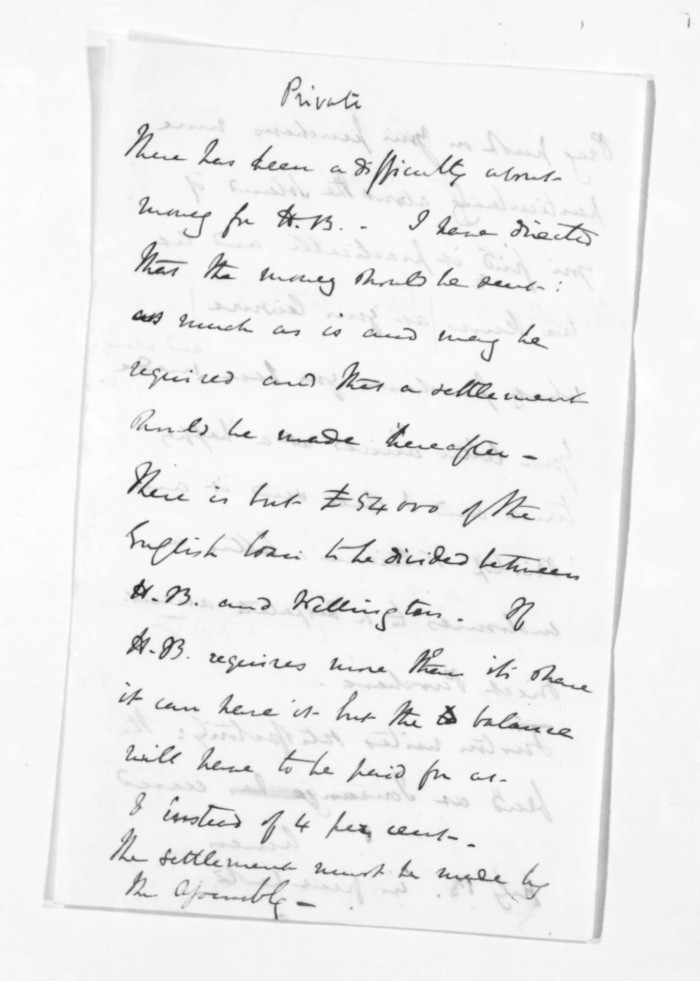 Private
There has been a difficulty about
money for H.B. - I have directed
that the money should be sent:
as much as is and may be
required and that a settlement
should be made hereafter -
There is but £54000 of the
English loan to be divided between
H.B. and Wellington. If
H.B. requires more than its share
it can have it but the balance
will have to be paid for at
instead of 4 per cent.
The settlement must be made by
the Assembly -